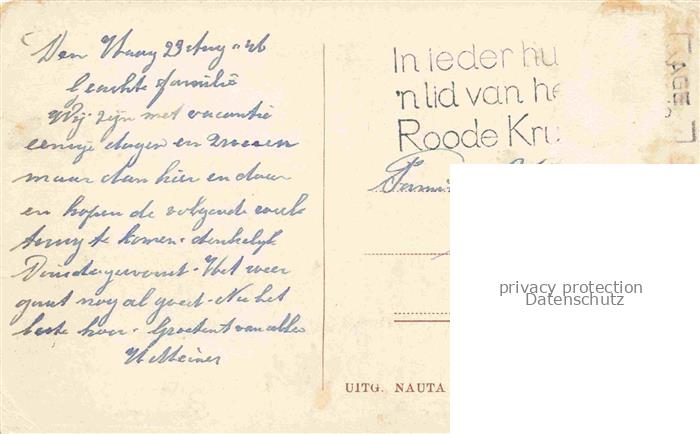 Den Haag 23 Aug - 46
Geachte familie
Wij zijn met vacantie
eenige dagen en zwerven
maar dan hier en daar
en hopen de volgende week
terug te komen. denkelijk
Dinsdagavond. Het weer
gaat nog al goed. Nu het
beste hoor. Groeten van allen
In ieder hu
'n lid van he
Roode Kru
AGE
UITG. NAUTA
privacy protection
Datenschutz